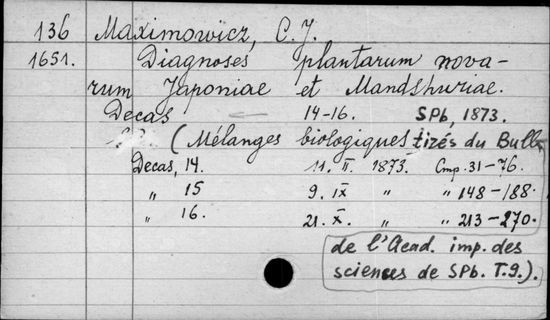 136 Maximowicz, C. J.
1651. Diagnoses plantarum nova-
rum Japoniae et Mandshuriae.
Decas 14-16. SPb, 1873.
(Mélanges biologiques tirés du Bull.
Decas, 14. 11. II. 1873. Стр. 31-76.
„ 15 9. IX „ „ 148-188.
„ 16. 21. X. „ „ 213-270.
de l'Acad. imp. des
sciences de SPb. T. 9.).